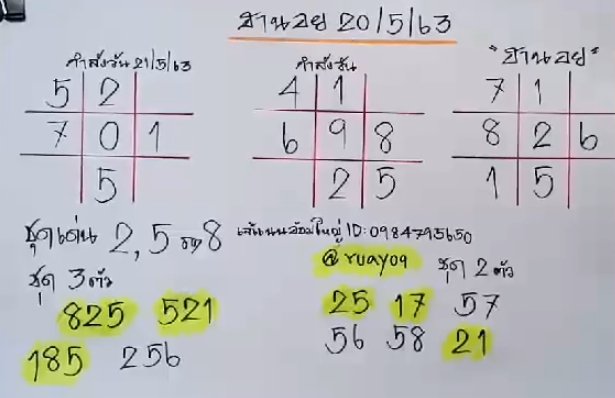 ฮานอย 20/5/63
กำลังวัน 21/5/63
กำลังวัน
"ฮานอย"
5 2
7 0 1
5
4 1
6 9 8
2 5
7 1
8 2 6
1 5
ชุดเด่น 2,5 8
ID:0984795650
@ruay09
ชุด 3 ตัว
825 521
185 256
ชุด 2 ตัว
25 17 57
56 58 21